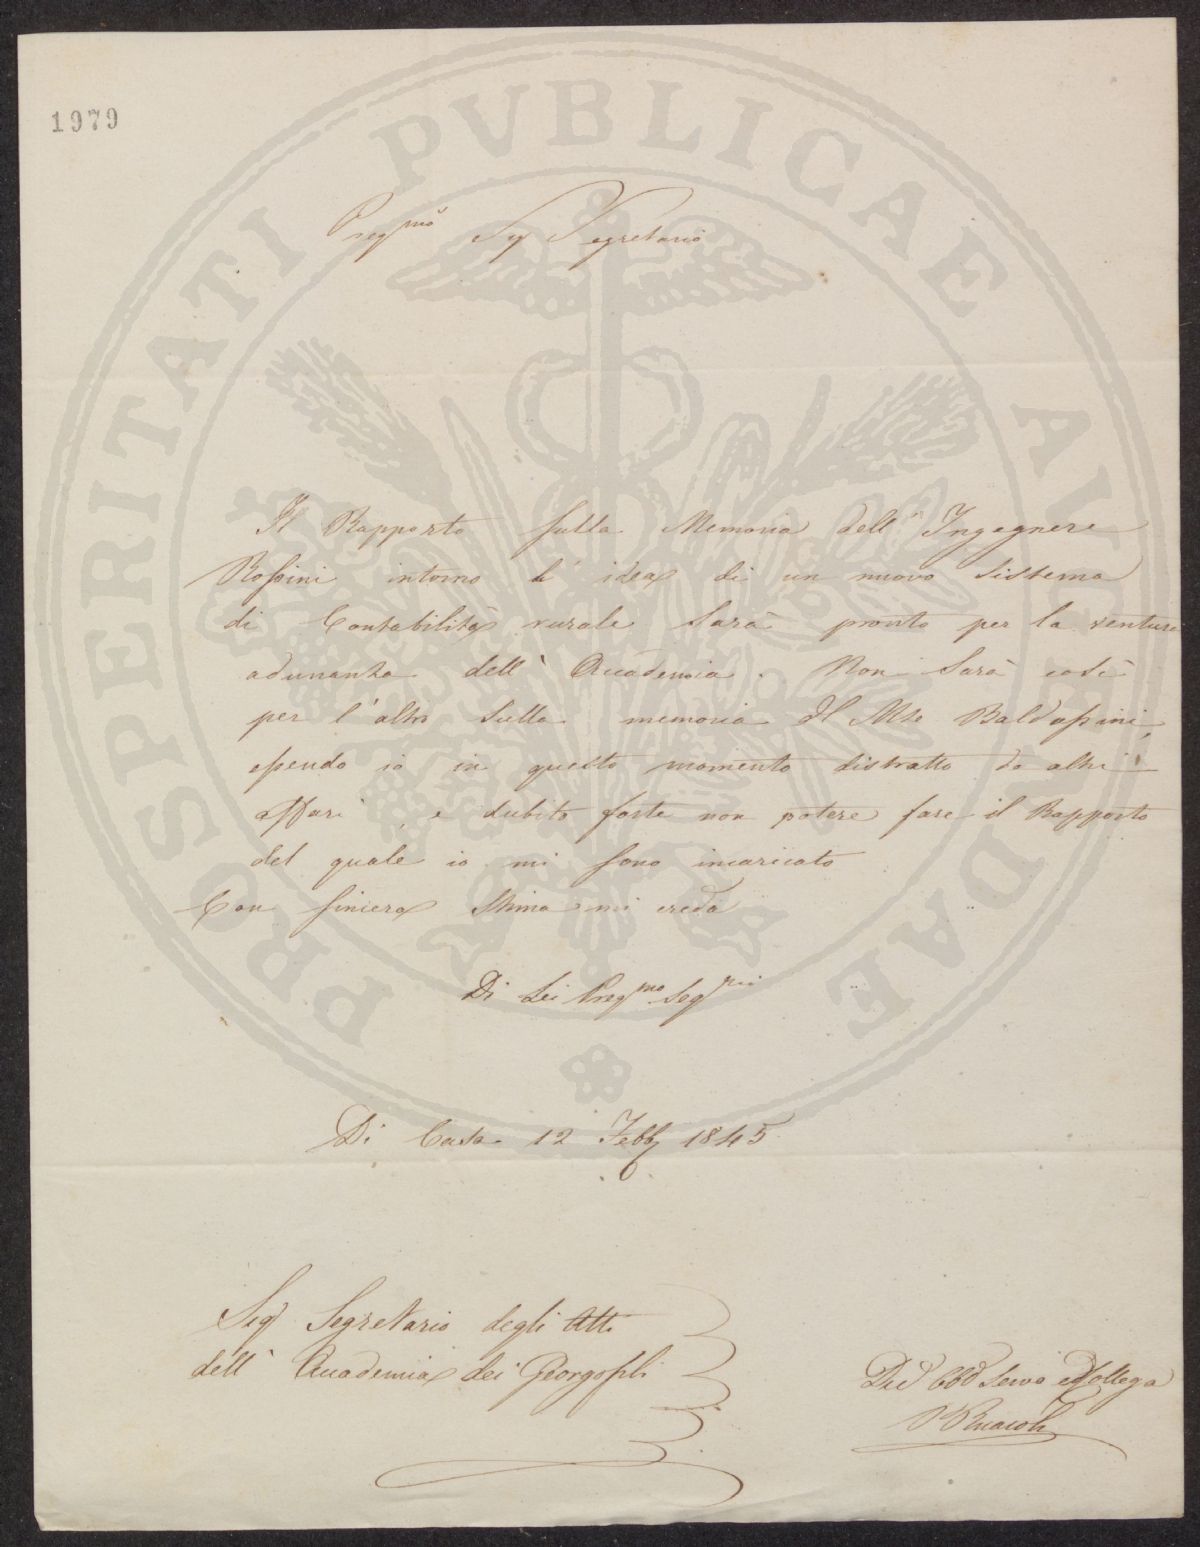 1979
PROSPERITATI PVBLICAE AVGENDAE
Preg.mo Sig Segretario
Il Rapporto sulla Memoria dell' Ingegnere
Rossini intorno l' idea di un nuovo Sistema
di Contabilità rurale sarà pronto per la ventura
adunanza dell' Accademia. Non sarà così
per l'altro sulla memoria del Mse Baldassini,
essendo io in questo momento distratto da altri
affari, e dubito forte non potere fare il Rapporto
del quale io mi sono incaricato
Con sincera stima mi creda
Di Lei Preg.mo Seg.rio
Di Casa 12 Febb 1845
Sig Segretario degli Atti
dell' Accademia dei Georgofili
Dev Obb Servo e Collega